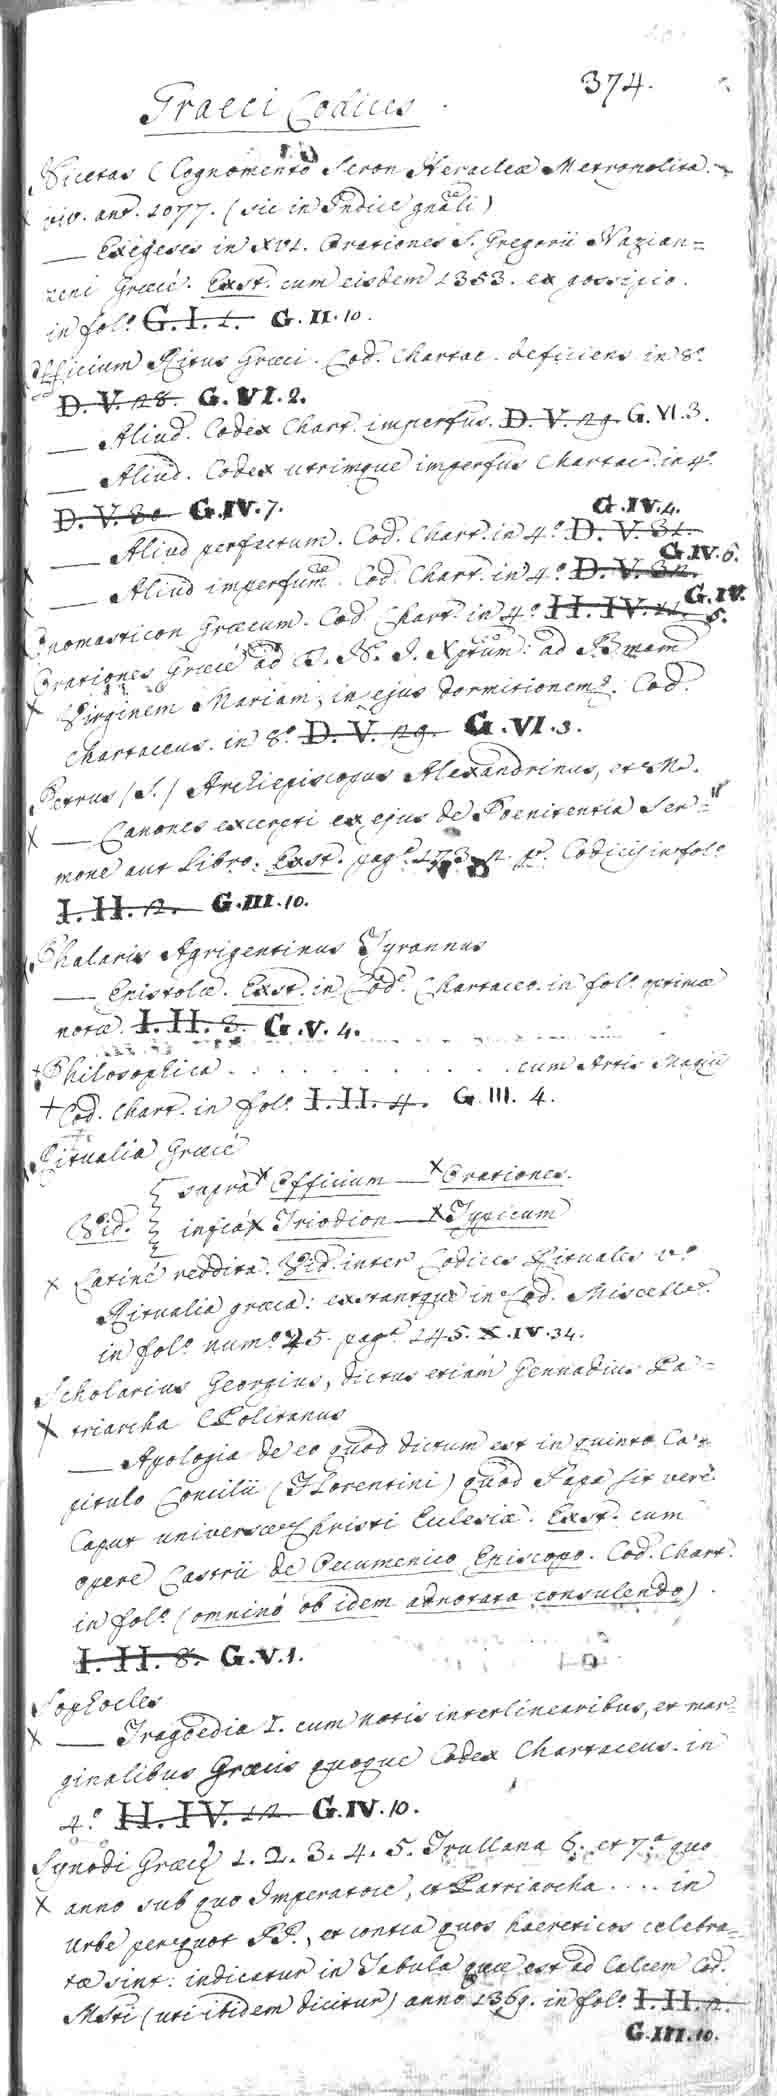 374.
Graeci Codices
Nicetas (Cognomento Seron Heracleae Metropolita.
viv. ann. 1077. (sic in Indice gnāli)
— Exegeses in XVI. Orationes S. Gregorii Nazian=
zeni Graecè. Exst. cum eisdem 1353. ex gossipio.
in fol.o G.I.1. G.II.10.
Officium Ritus Graeci. Cod. Chartac. deficiens in 8.o
D.V.28. G.VI.2.
— Aliud. Codex Chart. imperfus. D.V.29 G.VI.3.
— Aliud. Codex utrimque imperfus Chartac. in 4.o
D.V.30 G.IV.7.
G.IV.4.
— Aliud perfectum. Cod. Chart. in 4.o D.V.31.
G.IV.6.
— Aliud imperfum. Cod. Chart. in 4.o D.V.32.
G.IV.
Onomasticon Graecum. Cod. Chart. in 4.o H.IV.11. 5.
Orationes Graecè ad D.N.J. Xptum: ad Bmam
Virginem Mariam, in ejus dormitionem. Cod.
chartaceus. in 8.o D.V.29. G.VI.3.
Petrus (S.) Archiepiscopus Alexandrinus, et M.
— Canones excerpti ex ejus de Poenitentia Ser=
mone aut Libro. Exst. pag.a 173. Codicis in fol.o
I.II.2. G.III.10.
Phalaris Agrigentinus Tyrannus
— Epistolae. Exst. in Cod.e Chartaceo. in fol.o optimae
notae. I.II.3. G.V.4.
Philosophica . . . . . . . . . . cum Artis Magiae
Cod. Chart. in fol.o I.II.4. G.III.4.
Ritualia Graecè
supra Officium — Orationes.
Vid. infra Triodion — Typicum
Latinè reddita. Vid. inter Codices Rituales v.o
Ritualia graeca: exstantque in Cod. Miscell.o
in fol.o num.o 45. pag.a 245. X.IV.34.
Scholarius Georgius, dictus etiam Gennadius Pa=
triarcha CPolitanus
— Apologia de eo quod dictum est in quinto Ca=
pitulo Concilii (Florentini) quod Papa sit verè
Caput universae Christi Eclesiae. Exst. cum
opere Castrii de Oecumenico Episcopo. Cod. Chart.
in fol.o (omninò ob idem adnotata consulendo).
I.II.8. G.V.1.
Sophocles
— Tragoedia I. cum notis interlinearibus, et mar=
ginalibus Graecis quoque Codex Chartaceus. in
4.o H.IV.12 G.IV.10.
Synodi Graecè 1. 2. 3. 4. 5. Trullana 6. et 7.a quo
anno sub quo Imperatore, et Patriarcha .... in
Urbe per quot PP., et contra quos haereticos celebra=
tae sint: indicatur in Tabula quae est ad Calcem Cod.
MSti (uti itidem dicitur) anno 1369. in fol.o I.II.2.
G.III.10.